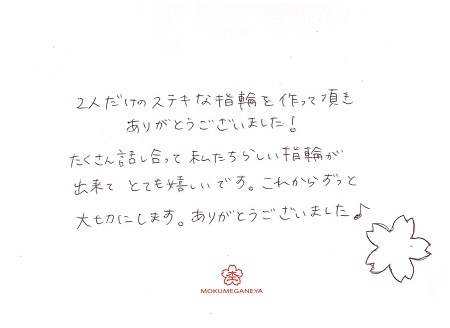 2人だけのステキな指輪を作って頂き
ありがとうございました!
たくさん話し合って私たちらしい指輪が
出来てとても嬉しいです。これからずっと
大切にします。ありがとうございました♪
MOKUMEGANEYA